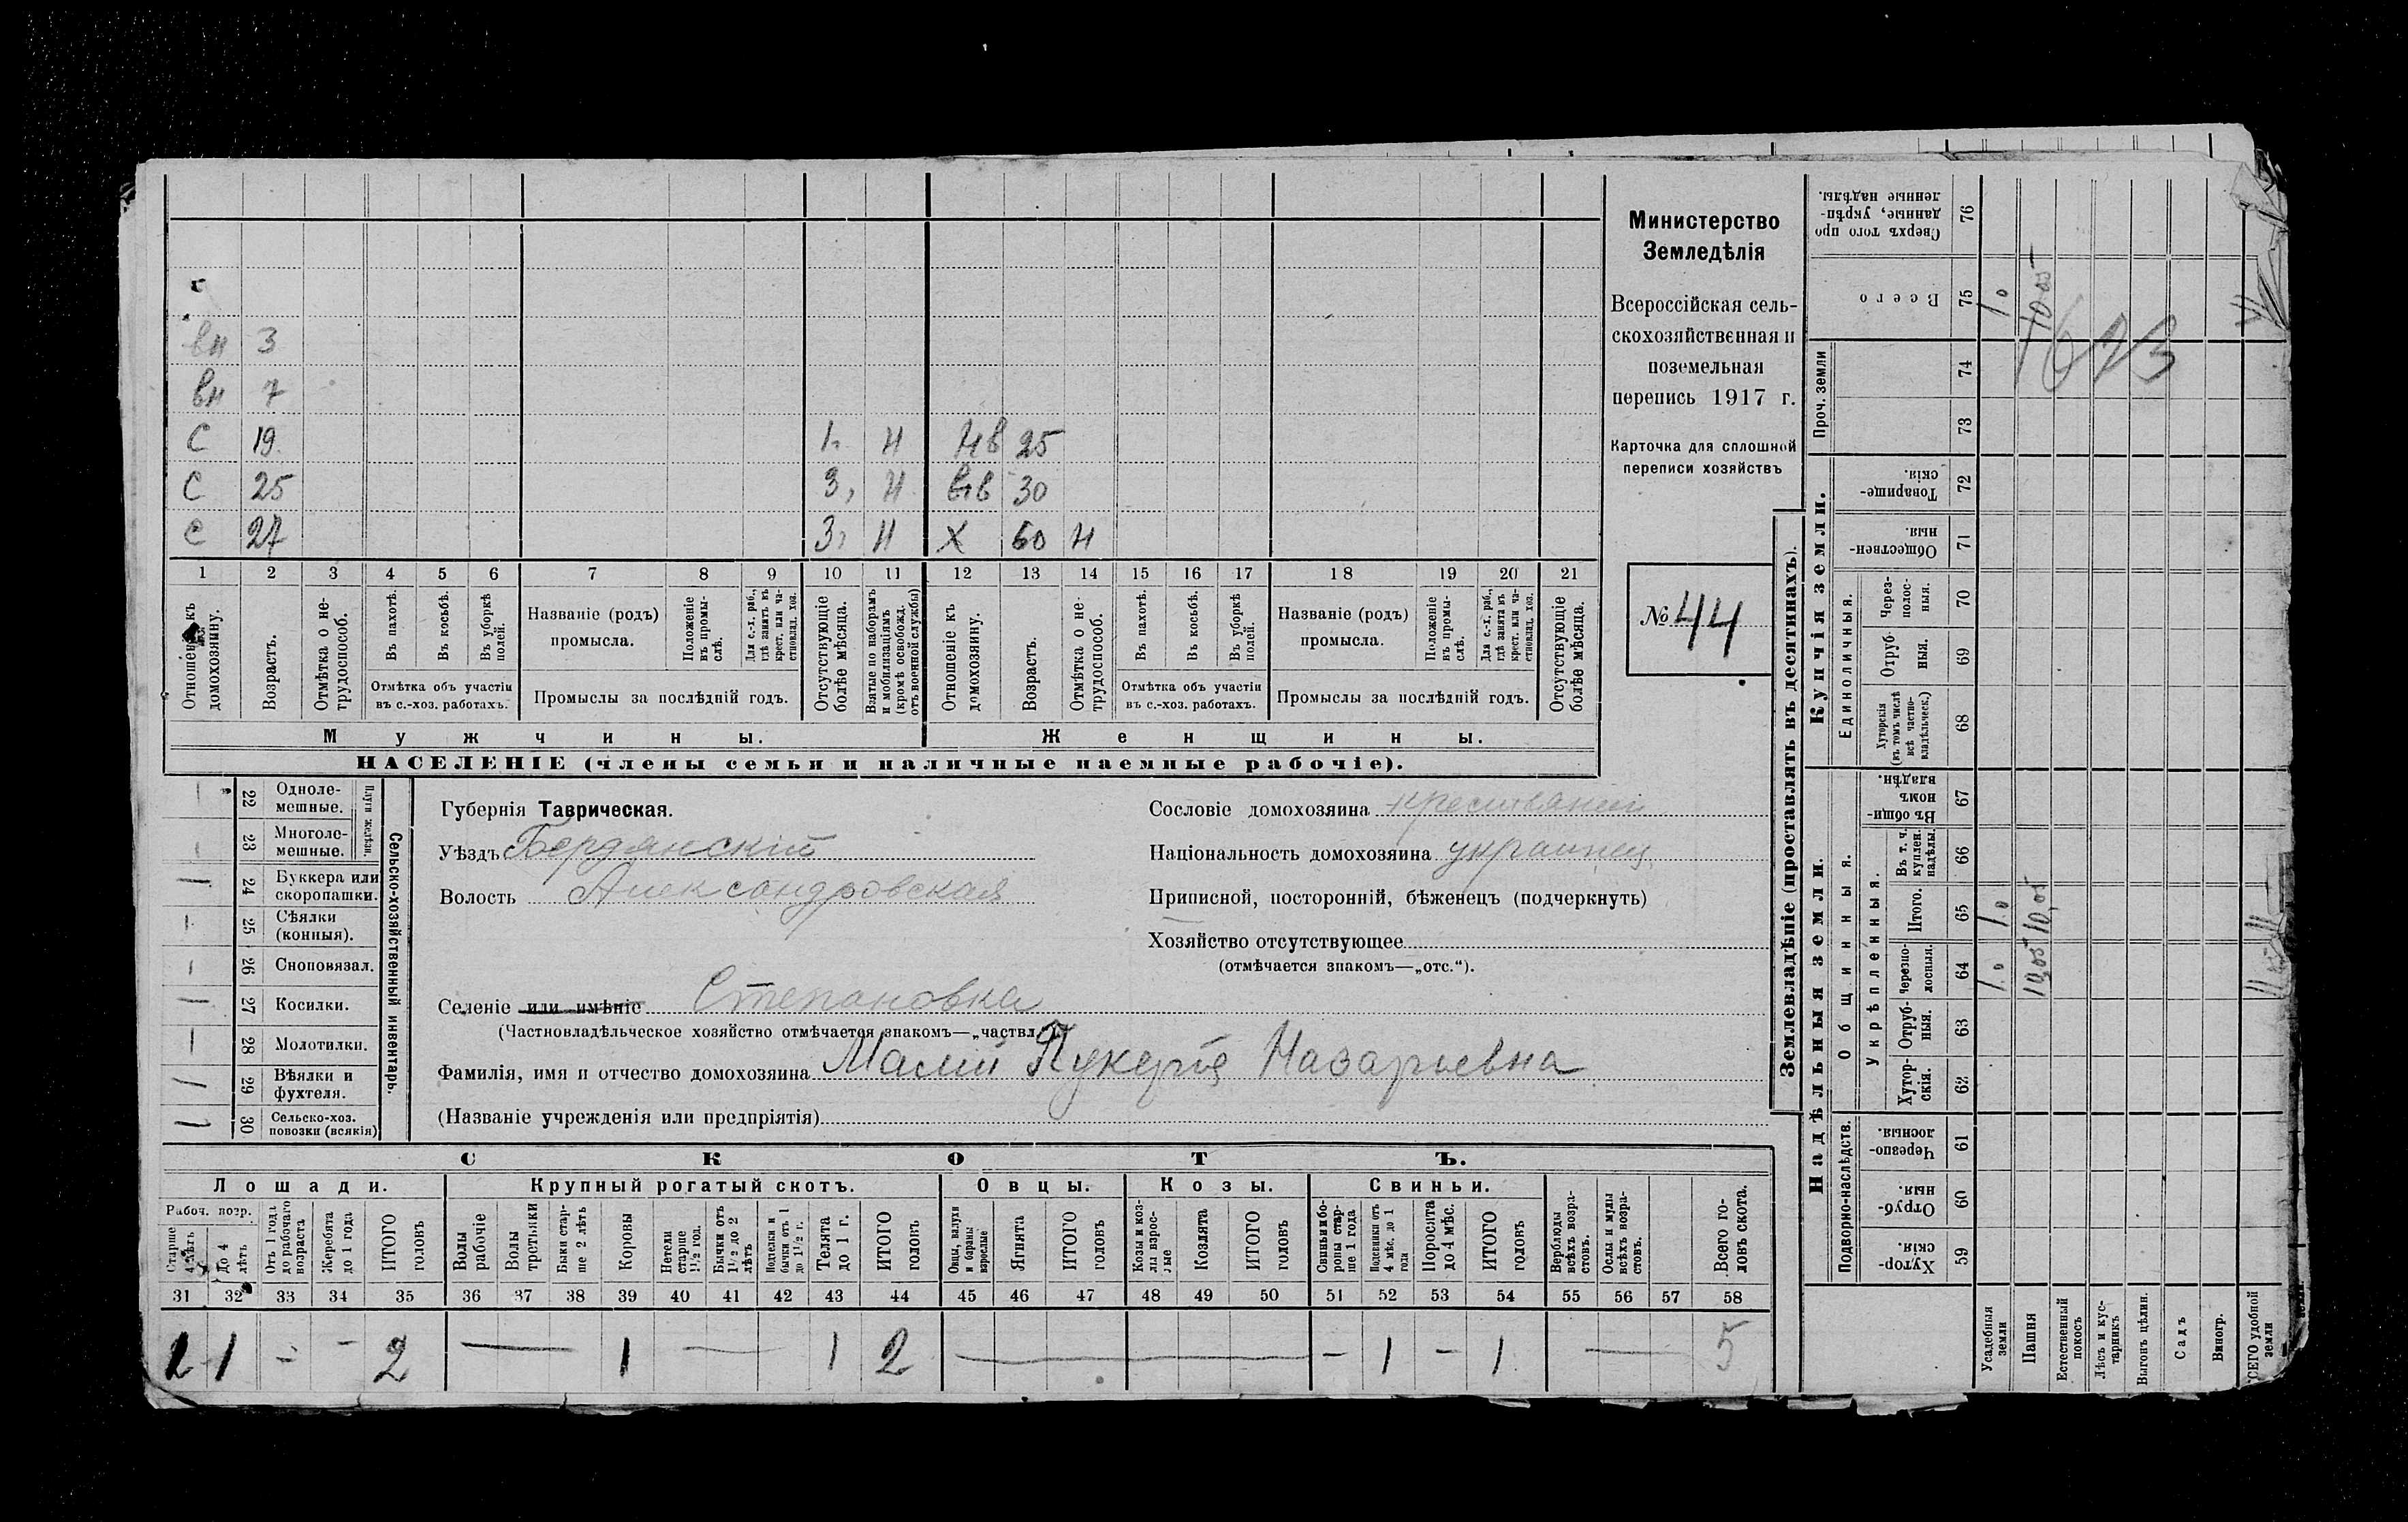 Министерство
Земледѣлія
Всероссійская сель-
скохозяйственная и
поземельная
перепись 1917 г.
Карточка для сплошной
переписи хозяйствъ
№ 44
вн 3
вн 7
С 19 1. Н Нв 25
С 25 3, Н вв 30
С 27 3, Н Х 60 Н
1 2 3 4 5 6 7 8 9 10 11 12 13 14 15 16 17 18 19 20 21
Отношеніе къ домохозяину.
Возрастъ.
Отмѣтка о не-трудоспособ.
Въ пахотѣ.
Въ косьбѣ.
Въ уборкѣ полей.
Отмѣтка объ участіи
въ с.-хоз. работахъ.
Названіе (родъ)
промысла.
Положеніе въ промы-слѣ.
Для с.-х. раб., гдѣ занятъ въ крест. или ча-стновлад. хоз.
Промыслы за послѣдній годъ.
Отсутствующіе болѣе мѣсяца.
Взятые по наборамъ и мобилизаціямъ (кромѣ освобожд. отъ военной службы)
Отношеніе къ домохозяину.
Возрастъ.
Отмѣтка о не-трудоспособ.
Въ пахотѣ.
Въ косьбѣ.
Въ уборкѣ полей.
Отмѣтка объ участіи
въ с.-хоз. работахъ.
Названіе (родъ)
промысла.
Положеніе въ промы-слѣ.
Для с.-х. раб., гдѣ занята въ крест. или ча-стновлад. хоз.
Промыслы за послѣдній годъ.
Отсутствующіе болѣе мѣсяца.
Мужчины. Женщины.
НАСЕЛЕНІЕ (члены семьи и наличные наемные рабочіе).
Сельско-хозяйственный инвентарь.
Плуги желѣзн.
22 Однолемешные. —
23 Многолемешные. —
24 Буккера или скоропашки. 1
25 Сѣялки (конныя). —
26 Сноповязал. —
27 Косилки. 1
28 Молотилки. —
29 Вѣялки и фухтеля. 1
30 Сельско-хоз. повозки (всякія) 1
Губернія Таврическая.
Уѣздъ Бердянскій
Волость Александровская
Селеніе или имѣніе Степановка
(Частновладѣльческое хозяйство отмѣчается знакомъ—„частвл.“).
Фамилія, имя и отчество домохозяина Малій Лукерія Назарьевна
(Названіе учрежденія или предпріятія)
Сословіе домохозяина крестьянин
Національность домохозяина украинец
Приписной, посторонній, бѣженецъ (подчеркнуть)
Хозяйство отсутствующее
(отмѣчается знакомъ—„отс.“).
СКОТЪ.
Лошади. Крупный рогатый скотъ. Овцы. Козы. Свиньи.
Рабоч. возр.
Старше 4 лѣтъ
До 4 лѣтъ
Отъ 1 года до рабочаго возраста
Жеребята до 1 года
ИТОГО головъ
Волы рабочіе
Волы третьяки
Быки стар-ше 2 лѣтъ
Коровы
Нетели старше 1½ год.
Бычки отъ 1½ до 2 лѣтъ
Подтелки и бычки отъ 1 до 1½ г.
Телята до 1 г.
ИТОГО головъ
Овцы, валухи и бараны взрослые
Ягнята
ИТОГО головъ
Козы и коз-лы взрос-лые
Козлята
ИТОГО головъ
Свиньи и бо-ровы стар-ше 1 года
Подсвинки отъ 4 мѣс. до 1 года
Поросята до 4 мѣс.
ИТОГО головъ
Верблюды всѣхъ возра-стовъ.
Ослы и мулы всѣхъ возра-стовъ.
Всего го-ловъ скота.
31 32 33 34 35 36 37 38 39 40 41 42 43 44 45 46 47 48 49 50 51 52 53 54 55 56 57 58
1 1 - - 2 — 1 — 1 2 — - 1 - 1 — 5
Землевладѣніе (проставлять въ десятинахъ).
Надѣльныя земли. Купчія земли.
Подворно-наслѣдств.
Общинныя.
Укрѣпленныя.
Единоличныя.
Проч. земли
59 Хутор-скія.
60 Отруб-ныя.
61 Черезпо-лосныя.
62 Хутор-скія.
63 Отруб-ныя.
64 Черезпо-лосныя.
65 Итого.
66 Въ т. ч. куплен. надѣлы.
67 Въ общи-номъ владѣн.
68 Хуторскія (въ томъ числѣ всѣ частно-владѣльческ.)
69 Отруб-ныя.
70 Через-полос-ныя.
71 Обществен-ныя.
72 Товарище-скія.
73
74
75 Всего
76 Сверхъ того про-данные, укрѣп-ленные надѣлы.
Усадебныя земли 1.0 1.0 1.0
Пашня 10,05 10,05 10,05
Естественный покосъ
Лѣсъ и кус-тарникъ
Выгонъ цѣлин.
Садъ
Виногр.
ВСЕГО удобной земли